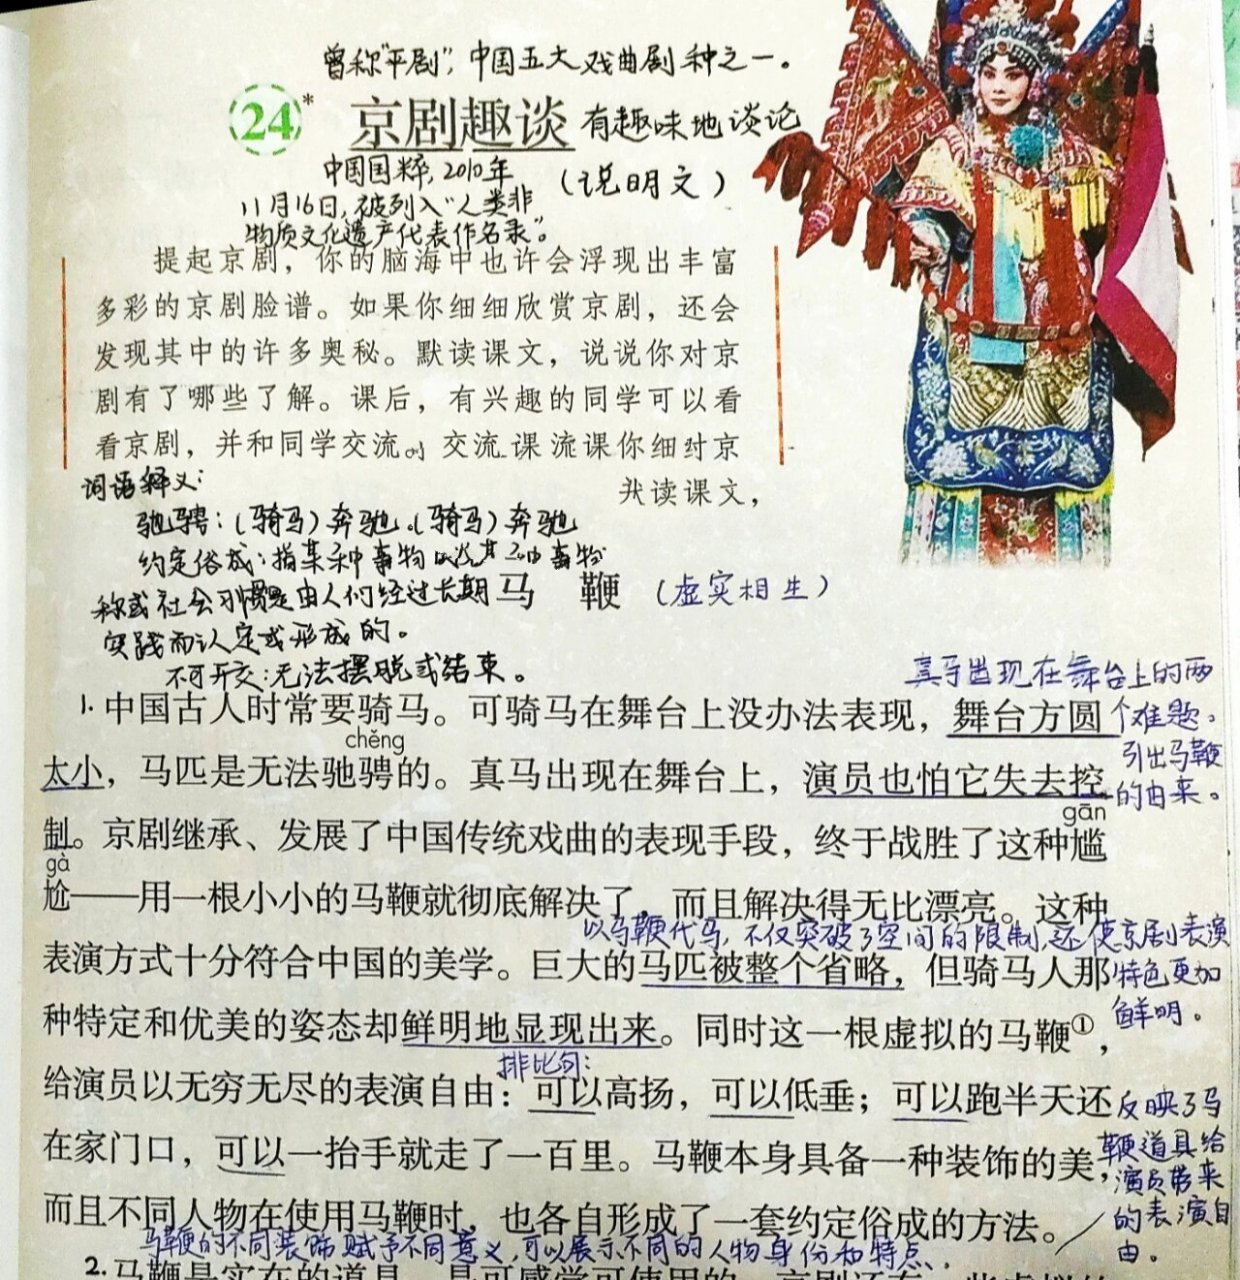 曾称"平剧",中国五大戏曲剧种之一。
24* 京剧趣谈 有趣味地谈论
中国国粹,2010年 (说明文)
11月16日,被列入"人类非
物质文化遗产代表作名录"。
提起京剧，你的脑海中也许会浮现出丰富
多彩的京剧脸谱。如果你细细欣赏京剧，还会
发现其中的许多奥秘。默读课文，说说你对京
剧有了哪些了解。课后，有兴趣的同学可以看
看京剧，并和同学交流。 交流 课流课你细 京
词语释义:
读课文，
驰骋:(骑马)奔驰。(骑马)奔驰
约定俗成:指某种事物 事物
称或社会习惯是由人们经过长期
马 鞭 (虚实相生)
实践而认定或形成的。
不可开交:无法摆脱或结束。
真马出现在舞台上的两
个难题。
引出马鞭
的由来。
1.中国古人时常要骑马。可骑马在舞台上没办法表现，舞台方圆
chěng
太小，马匹是无法驰骋的。真马出现在舞台上，演员也怕它失去控
gān
制。京剧继承、发展了中国传统戏曲的表现手段，终于战胜了这种尴
gà
尬——用一根小小的马鞭就彻底解决了，而且解决得无比漂亮。这种
以马鞭代马,不仅突破了空间的限制,还使京剧表演
特色更加
鲜明。
表演方式十分符合中国的美学。巨大的马匹被整个省略，但骑马人那
种特定和优美的姿态却鲜明地显现出来。同时这一根虚拟的马鞭①，
排比句:
给演员以无穷无尽的表演自由：可以高扬，可以低垂；可以跑半天还
在家门口，可以一抬手就走了一百里。马鞭本身具备一种装饰的美，
反映了马
鞭道具给
演员带来
的表演自
由。
而且不同人物在使用马鞭时，也各自形成了一套约定俗成的方法。
马鞭的不同装饰赋予不同意义,可以展示不同的人物身份和特点.
2.马鞭是实在的道具，是可感觉可使用的。京剧还有一些虚拟的